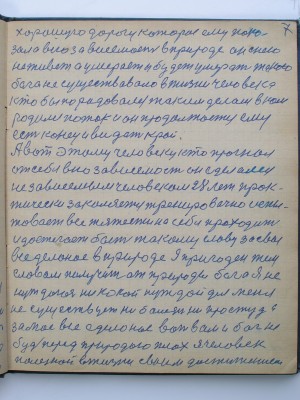 7
хорошую дорогу которая ему пока-
зала в независемости в природе он с него
не живет а умерает и будет умерать такого
бога не существавало в жизни человека
кто бы порадовался таким делам в нем
родился поток и он продолжается ему
есть конец и видать край.
А вот этому человеку кто прогнал
от себя в независемость он сделался
не зависемым человеком 28 лет прак-
тически закаляется тренировочно испы-
товает все тяжести на себе проходит
и достегает бает такому слову за свое
все делоное в природе Я пригоден тем
словам получить от природы бога Я не
нуждаюся никокой нуждой для меня
не существует ни болезни ни простуда
за мое все сделоное вот вам и бог не
буд перед природаю плох я человек
полезной в жизни своим достижением